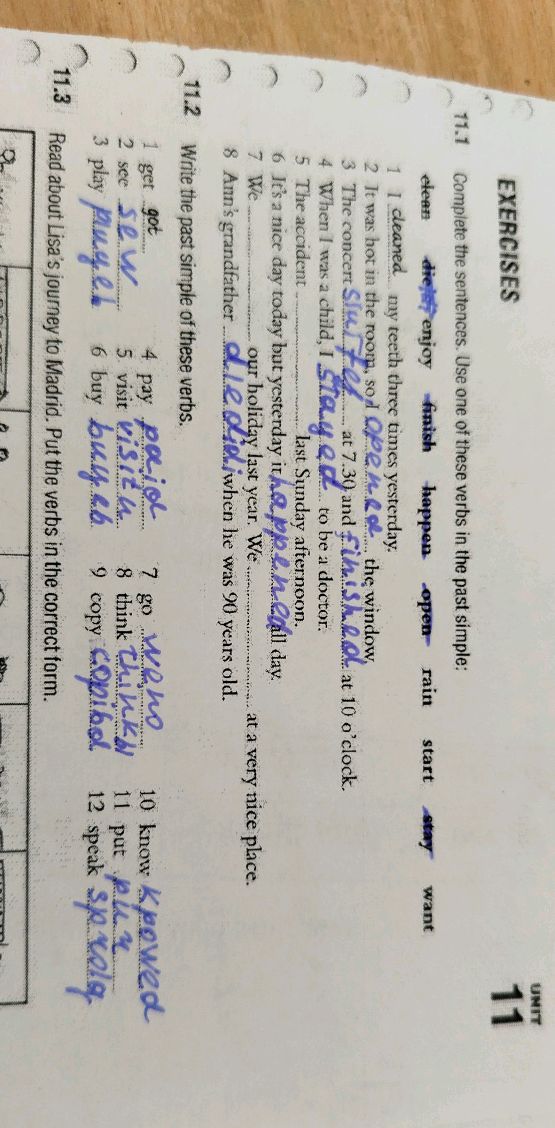 UNIT
11
EXERCISES
11.1 Complete the sentences. Use one of these verbs in the past simple:
clean die enjoy finish happen open rain start stay want
1 I cleaned my teeth three times yesterday.
2 It was hot in the room, so I opened the window.
3 The concert at 7.30 and finished at 10 o'clock.
4 When I was a child, I stayed to be a doctor.
5 The accident last Sunday afternoon.
6 It's a nice day today but yesterday it happened all day.
7 We our holiday last year. We at a very nice place.
8 Ann's grandfather when he was 90 years old.
11.2 Write the past simple of these verbs.
1 get got 4 pay paid 7 go 10 know
2 see sew 5 visit 8 think 11 put
3 play 6 buy 9 copy 12 speak
11.3 Read about Lisa's journey to Madrid. Put the verbs in the correct form.